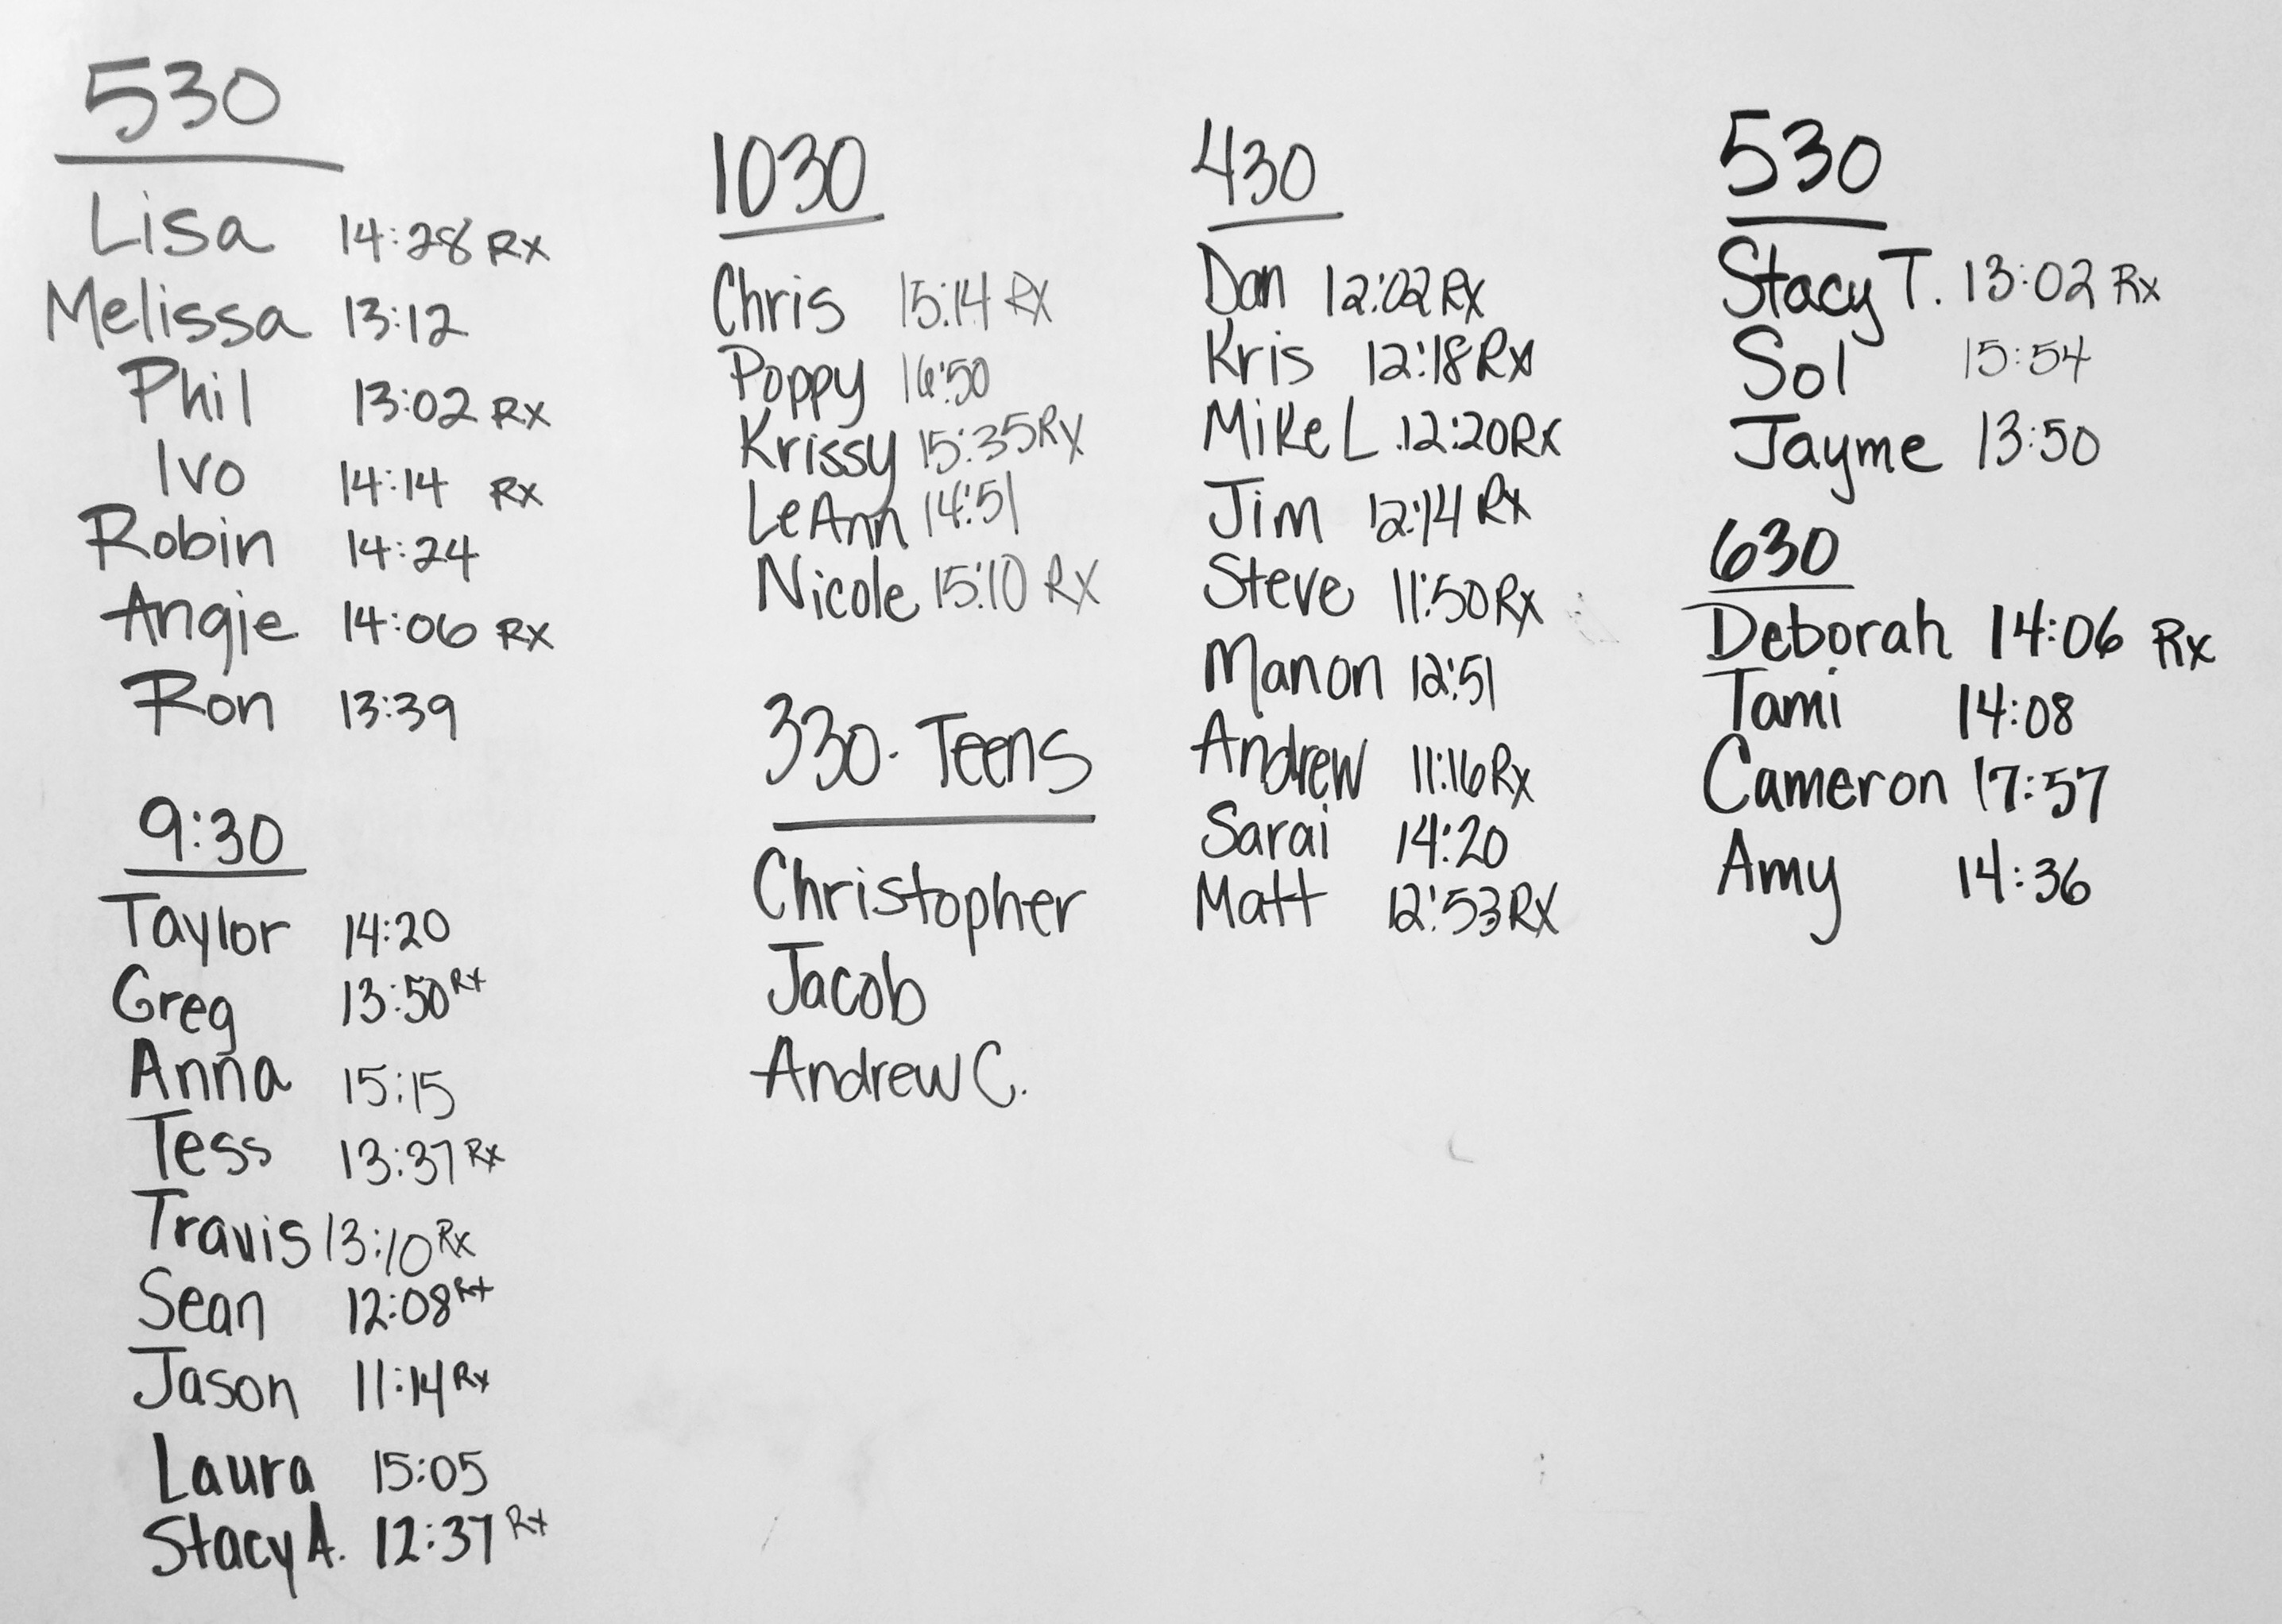 530
Lisa 14:28 Rx
Melissa 13:12
Phil 13:02 Rx
Ivo 14:14 Rx
Robin 14:24
Angie 14:06 Rx
Ron 13:39
9:30
Taylor 14:20
Greg 13:50 Rx
Anna 15:15
Tess 13:37 Rx
Travis 13:10 Rx
Sean 12:08 Rx
Jason 11:14 Rx
Laura 15:05
Stacy A. 12:37 Rx
1030
Chris 15:14 RX
Poppy 16:50
Krissy 15:35 RX
LeAnn 14:51
Nicole 15:10 RX
330 - Teens
Christopher
Jacob
Andrew C.
430
Dan 12:02 Rx
Kris 12:18 Rx
Mike L 12:20 Rx
Jim 12:14 Rx
Steve 11:50 Rx
Manon 12:51
Andrew 11:16 Rx
Sarai 14:20
Matt 12:53 RX
530
Stacy T. 13:02 Rx
Sol 15:54
Jayme 13:50
630
Deborah 14:06 Rx
Tami 14:08
Cameron 17:57
Amy 14:36